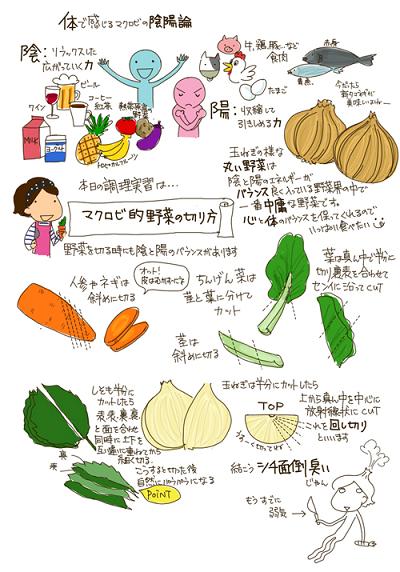 体で感じるマクロビの陰陽論
陰：リラックスした
広がっていく力
ビール
ワイン
コーヒー
紅茶
熱帯原産の
野菜
MILK
ヨーグルト
トロピカルフルーツ
牛、鶏、豚…など
食肉
たまご
赤身
青魚
陽：収縮して
引きしめる力
今だったら
新タマネギが
美味しいよねー
玉ねぎの様な
丸い野菜は
陰と陽のエネルギーが
バランス良く入っている野菜界の中で
一番中庸な野菜です。
心と体のバランスを保ってくれるので
いっぱい食べたい
本日の調理実習は…
マクロビ的野菜の切り方
野菜を切る時にも陰と陽のバランスがあります
人参やネギは
斜めに切る
オット!
皮はむかないよ
ちんげん菜は
茎と葉に分けて
カット
茎は
斜めに切る
葉は真ん中で半分に
切り裏表を合わせて
センイに沿ってCUT
しそも半分に
カットしたら
表表、裏裏
と面を合わせ
同時に上下を
互い違いに重ねてから
細く切る。
こうすると切った後
自然にふわふわになる
POINT
裏
表
玉ねぎは半分にカットしたら
TOP
上から真ん中を中心に
放射線状にCUT
これを回し切り
といいます
うすーく切ってネ
結こうシチ面倒臭い
じゃん
もうすでに
弱気→